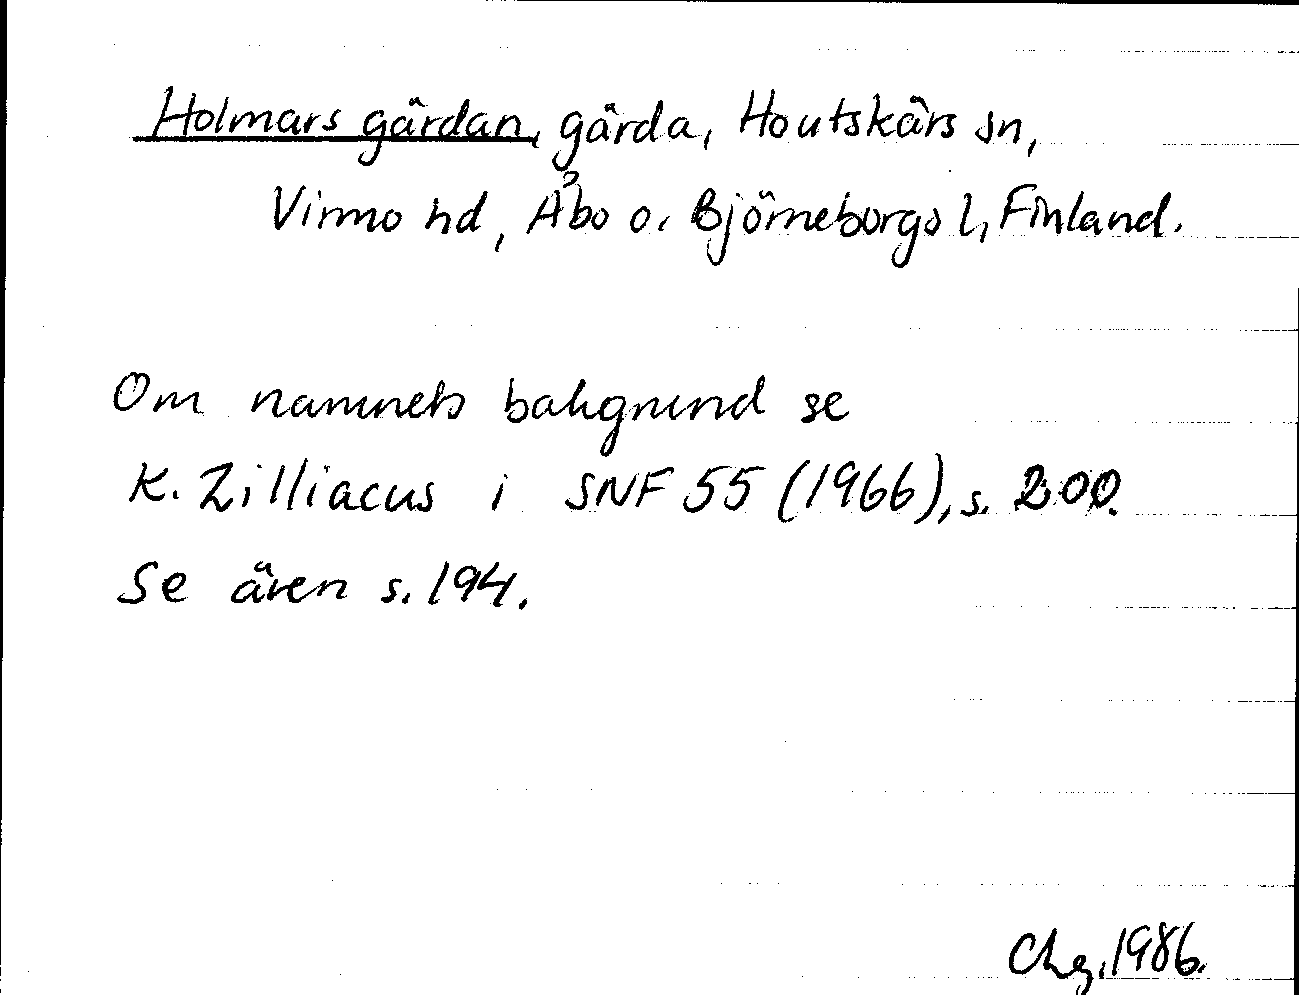 Holmars gärdan, gärda, Houtskärs sn,
Virmo hd, Åbo o. Björneborgs l, Finland.
Om namnets bakgrund se
K. Zilliacus i SNF 55 (1966), s. 200.
Se även s. 194.
Chg. 1986.